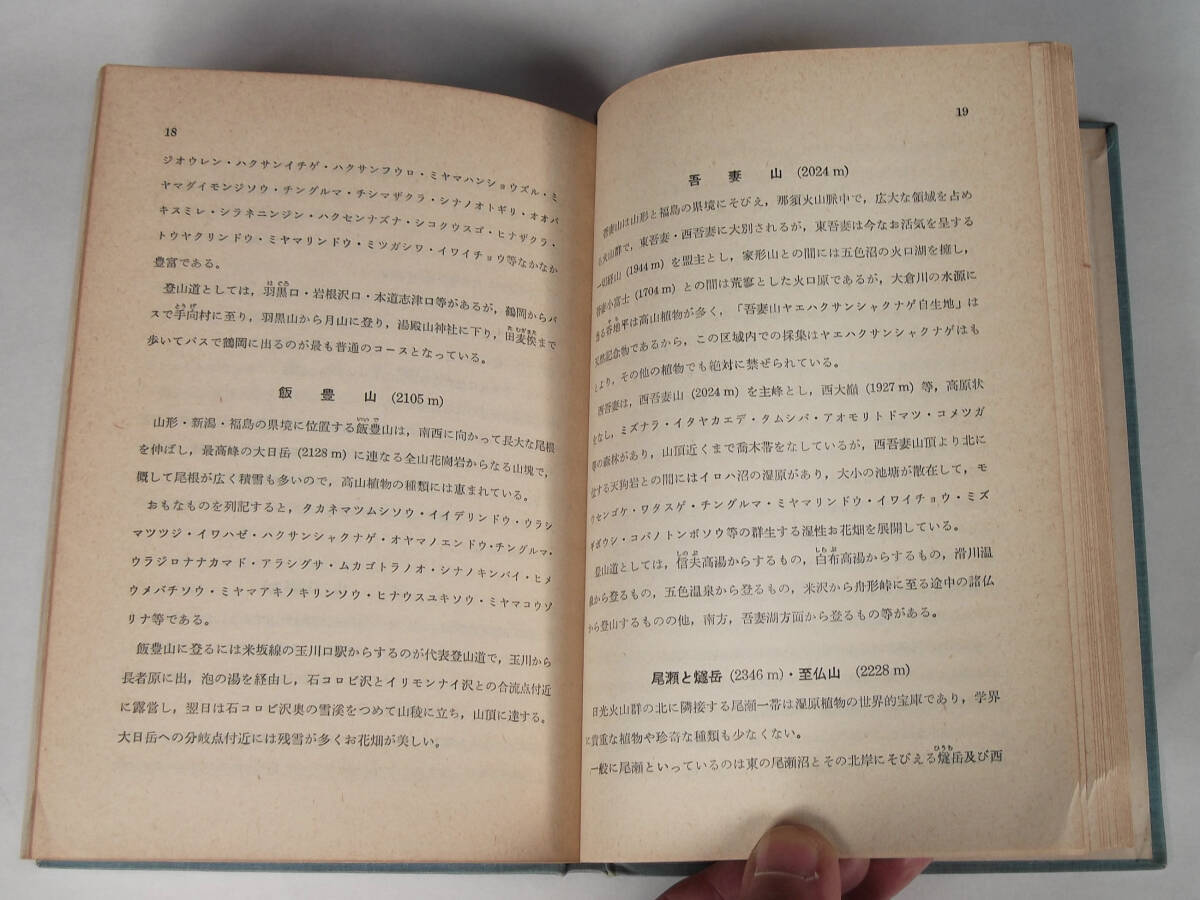 18
ジオウレン・ハクサンイチゲ・ハクサンフウロ・ミヤマハンショウズル・ミ
ヤマダイモンジソウ・チングルマ・チシマザクラ・シナノオトギリ・オオバ
キスミレ・シラネニンジン・ハクセンナズナ・シコクウスゴ・ヒナザクラ・
トウヤクリンドウ・ミヤマリンドウ・ミツガシワ・イワイチョウ等なかなか
豊富である。
登山道としては，羽黒口・岩根沢口・本道志津口等があるが，鶴岡からバ
スで手向村に至り，羽黒山から月山に登り，湯殿山神社に下り，田麦俣まで
歩いてバスで鶴岡に出るのが最も普通のコースとなっている。
飯豊山 (2105 m)
山形・新潟・福島の県境に位置する飯豊山は，南西に向かって長大な尾根
を伸ばし，最高峰の大日岳 (2128 m) に連なる全山花崗岩からなる山塊で，
概して尾根が広く積雪も多いので，高山植物の種類には恵まれている。
おもなものを列記すると，タカネマツムシソウ・イイデリンドウ・ウラシ
マツツジ・イワハゼ・ハクサンシャクナゲ・オヤマノエンドウ・チングルマ・
ウラジロナナカマド・アラシグサ・ムカゴトラノオ・シナノキンバイ・ヒメ
ウメバチソウ・ミヤマアキノキリンソウ・ヒナウスユキソウ・ミヤマコウゾ
リナ等である。
飯豊山に登るには米坂線の玉川口駅からするのが代表登山道で，玉川から
長者原に出，泡の湯を経由し，石コロビ沢とイリモンナイ沢との合流点付近
に露営し，翌日は石コロビ沢奥の雪渓をつめて山稜に立ち，山頂に達する。
大日岳への分岐点付近には残雪が多くお花畑が美しい。
19
吾妻山 (2024 m)
吾妻山は山形と福島の県境にそびえ，那須火山脈中で，広大な領域を占め
る火山群で，東吾妻・西吾妻に大別されるが，東吾妻は今なお活気を呈する
一切経山 (1944 m) を盟主とし，家形山との間には五色沼の火口湖を擁し，
吾妻小富士 (1704 m) との間は荒寥とした火口原であるが，大倉川の水源に
当る谷地平は高山植物が多く，「吾妻山ヤエハクサンシャクナゲ自生地」は
天然記念物であるから，この区域内での採集はヤエハクサンシャクナゲはも
とより，その他の植物でも絶対に禁ぜられている。
西吾妻は，西吾妻山 (2024 m) を主峰とし，西大巓 (1927 m) 等，高原状
をなし，ミズナラ・イタヤカエデ・タムシバ・アオモリトドマツ・コメツガ
等の森林があり，山頂近くまで喬木帯をなしているが，西吾妻山頂より北に
位する天狗岩との間にはイロハ沼の湿原があり，大小の池塘が散在して，モ
ウセンゴケ・ワタスゲ・チングルマ・ミヤマリンドウ・イワイチョウ・ミズ
ギボウシ・コバノトンボソウ等の群生する湿性お花畑を展開している。
登山道としては，信夫高湯からするもの，白布高湯からするもの，滑川温
泉から登るもの，五色温泉から登るもの，米沢から舟形峠に至る途中の諸仏
から登山するものの他，南方，吾妻湖方面から登るもの等がある。
尾瀬と燧岳 (2346 m)・至仏山 (2228 m)
日光火山群の北に隣接する尾瀬一帯は湿原植物の世界的宝庫であり，学界
に貴重な植物や珍奇な種類も少なくない。
一般に尾瀬といっているのは東の尾瀬沼とその北岸にそびえる燧岳及び西